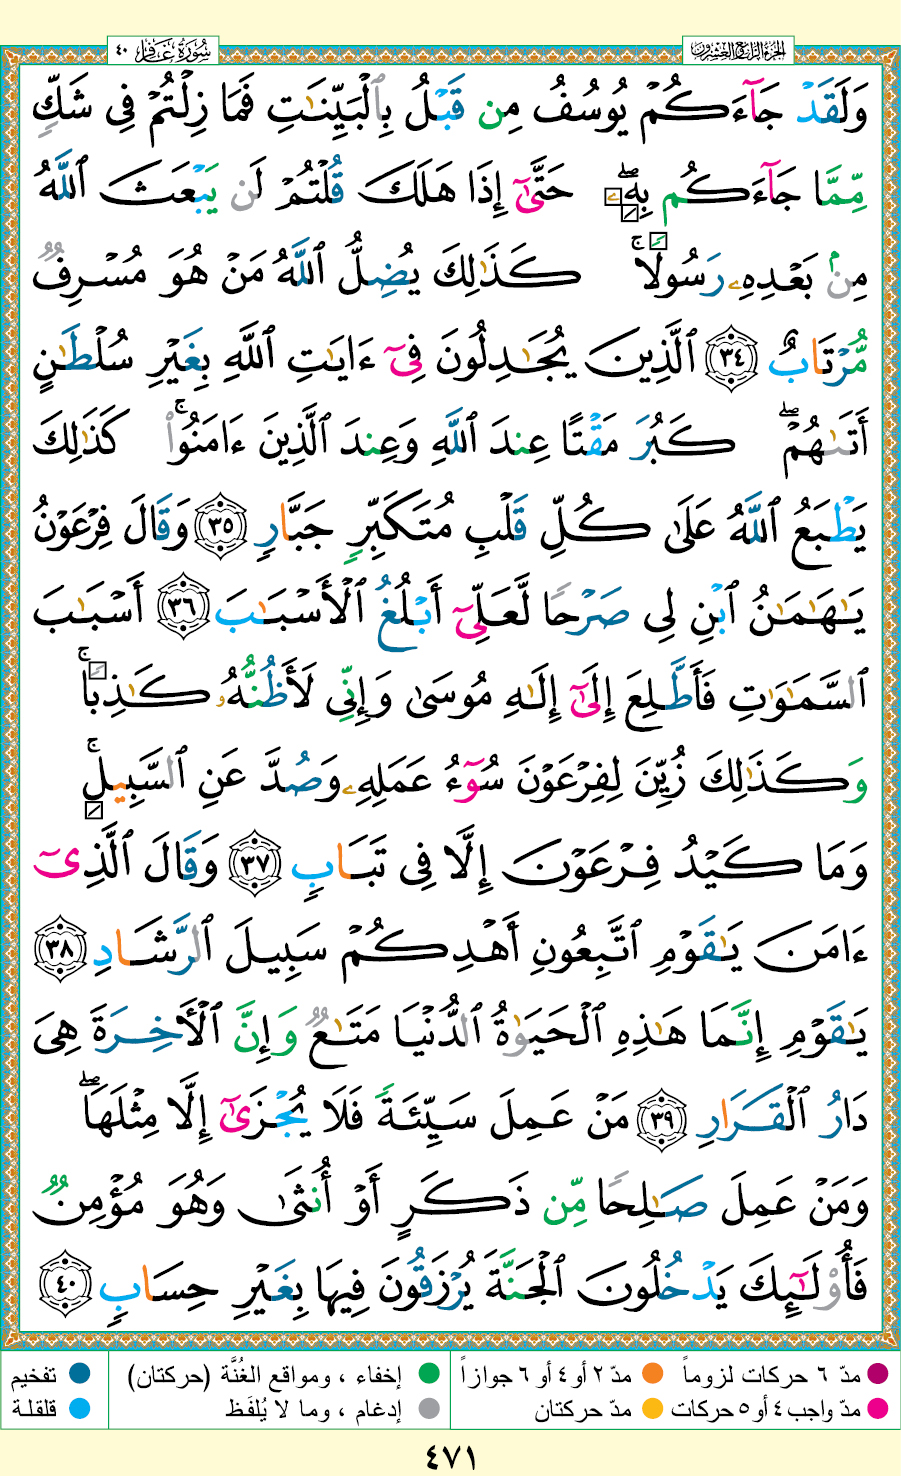 سُورَةُ غَافِر ٤٠
الجُزءُ الرَّابِعُ وَالعِشْرُونَ
وَلَقَدْ جَآءَكُمْ يُوسُفُ مِن قَبْلُ بِٱلْبَيِّنَٰتِ فَمَا زِلْتُمْ فِى شَكٍّ
مِّمَّا جَآءَكُم بِهِۦۖ حَتَّىٰٓ إِذَا هَلَكَ قُلْتُمْ لَن يَبْعَثَ ٱللَّهُ
مِنۢ بَعْدِهِۦ رَسُولًاۚ كَذَٰلِكَ يُضِلُّ ٱللَّهُ مَنْ هُوَ مُسْرِفٌ
مُّرْتَابٌ ٣٤ ٱلَّذِينَ يُجَٰدِلُونَ فِىٓ ءَايَٰتِ ٱللَّهِ بِغَيْرِ سُلْطَٰنٍ
أَتَىٰهُمْۖ كَبُرَ مَقْتًا عِندَ ٱللَّهِ وَعِندَ ٱلَّذِينَ ءَامَنُوا۟ۚ كَذَٰلِكَ
يَطْبَعُ ٱللَّهُ عَلَىٰ كُلِّ قَلْبِ مُتَكَبِّرٍ جَبَّارٍ ٣٥ وَقَالَ فِرْعَوْنُ
يَٰهَٰمَٰنُ ٱبْنِ لِى صَرْحًا لَّعَلِّىٓ أَبْلُغُ ٱلْأَسْبَٰبَ ٣٦ أَسْبَٰبَ
ٱلسَّمَٰوَٰتِ فَأَطَّلِعَ إِلَىٰٓ إِلَٰهِ مُوسَىٰ وَإِنِّى لَأَظُنُّهُۥ كَٰذِبًاۚ
وَكَذَٰلِكَ زُيِّنَ لِفِرْعَوْنَ سُوٓءُ عَمَلِهِۦ وَصُدَّ عَنِ ٱلسَّبِيلِۚ
وَمَا كَيْدُ فِرْعَوْنَ إِلَّا فِى تَبَابٍ ٣٧ وَقَالَ ٱلَّذِىٓ
ءَامَنَ يَٰقَوْمِ ٱتَّبِعُونِ أَهْدِكُمْ سَبِيلَ ٱلرَّشَادِ ٣٨
يَٰقَوْمِ إِنَّمَا هَٰذِهِ ٱلْحَيَوٰةُ ٱلدُّنْيَا مَتَٰعٌ وَإِنَّ ٱلْأَخِرَةَ هِىَ
دَارُ ٱلْقَرَارِ ٣٩ مَنْ عَمِلَ سَيِّئَةً فَلَا يُجْزَىٰٓ إِلَّا مِثْلَهَاۖ
وَمَنْ عَمِلَ صَٰلِحًا مِّن ذَكَرٍ أَوْ أُنثَىٰ وَهُوَ مُؤْمِنٌ
فَأُو۟لَٰٓئِكَ يَدْخُلُونَ ٱلْجَنَّةَ يُرْزَقُونَ فِيهَا بِغَيْرِ حِسَابٍ ٤٠
مدّ ٦ حركات لزوماً مدّ ٢ أو ٤ أو ٦ جوازاً إخفاء ، ومواقع الغُنَّة (حركتان) تفخيم
مدّ واجب ٤ أو ٥ حركات مدّ حركتان إدغام ، وما لا يُلفَظ قلقلة
٤٧١